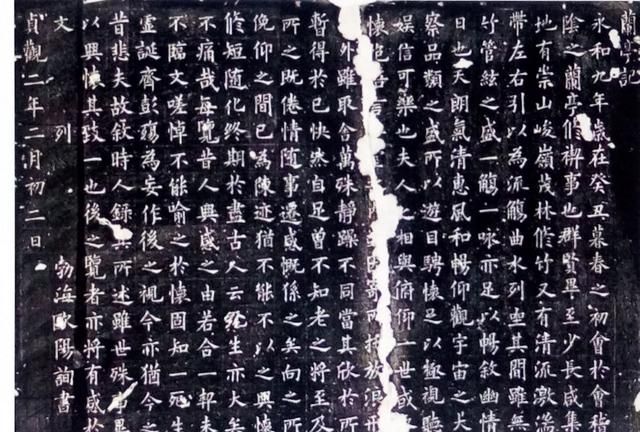 蘭亭記
永和九年歲在癸丑暮春之初會於會稽
陰之蘭亭修禊事也群賢畢至少長咸集
地有崇山峻嶺茂林修竹又有清流激湍
帶左右引以為流觴曲水列坐其間雖無
竹管絃之盛一觴一咏亦足以暢敘幽情
日也天朗氣清惠風和暢仰觀宇宙之大
察品類之盛所以遊目騁懷足以極視聽
娛信可樂也夫人之相與俯仰一世或
懷言寄所托放浪形
外雖取舍萬殊靜躁不同當其欣於所
暫得於己快然自足曾不知老之將至及
所之既倦情隨事遷感慨係之矣向之所
俛仰之間已為陳迹猶不能不以之興懷
修短隨化終期於盡古人云死生亦大矣
不痛哉每覽昔人興感之由若合一契未
不臨文嗟悼不能喻之於懷固知一死生
虛誕齊彭殤為妄作後之視今亦猶今之
昔悲夫故敘時人錄其所述雖世殊事異
以興懷其致一也後之覽者亦將有感於
文列 勃海歐陽詢書
貞觀二年二月初二日